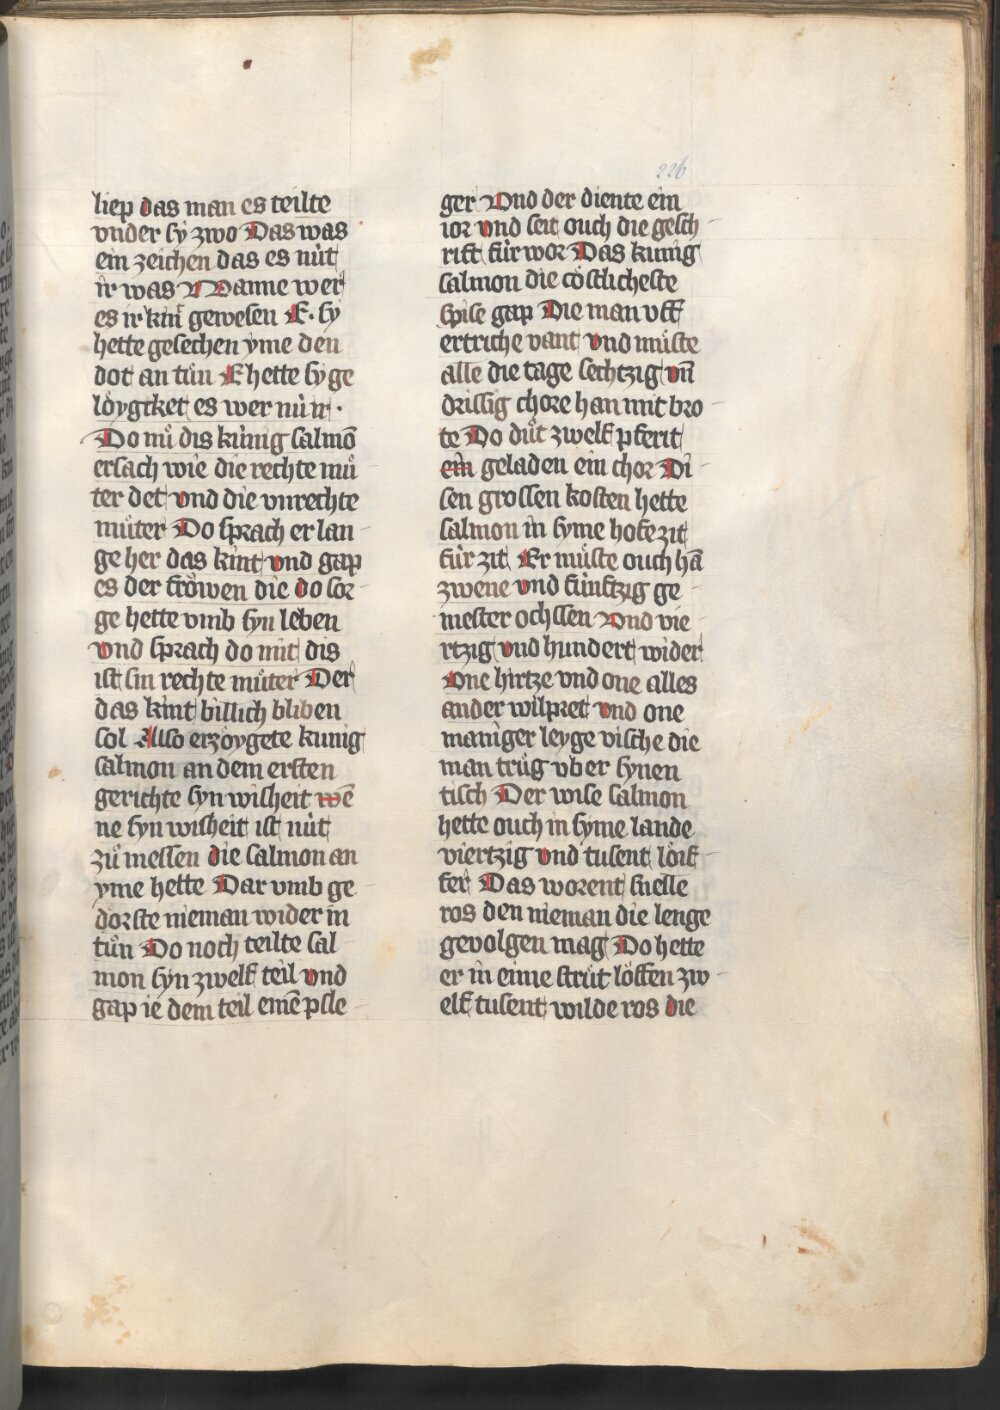 226
liep das man es teilte
vnder sy zwo Das was
ein zeichen das es nuͤt
ir was Wanne wer
es ir kint gewesen E· sy
hette gesechen yme den
dot an tuͦn E hette sy ge
loͤygtket es wer nuͤ ir ·
Do nuͦ dis kuͤnig salmō
ersach wie die rechte muͦ
ter det vnd die vnrechte
muͦter Do sprach er lan
ge her das kint vnd gap
es der froͤwen die do sor
ge hette vmb syn leben
vnd sprach do mit dis
ist sin rechte muͦter Der
das kint billich bliben
sol Also erzoͤygete kunig
salmon an dem ersten
gerichte syn wisheit wē
ne syn wisheit ist nuͤt
zuͦ messen die salmon an
yme hette Dar vmb ge
dorste nieman wider in
tuͦn Do noch teilte sal
mon syn zwelf teil vnd
gap ie dem teil einē psle
ger Vnd der diente ein
ior vnd seit ouch die gesch
rift fuͤr wor Das kunig
salmon die coͤstlicheste
spise gap Die man vff
ertriche vant vnd muͤste
alle die tage sechtzig vn̄
drissig chore han mit bro
te Do duͦt zwelf pferit
ein geladen ein chor Di
sen grossen kosten hette
salmon in syme hofe zit
fuͤr zit Er muͤste ouch hā
zwene vnd fuͤnftzig ge
mester ochssen Vnd vie
rtzig vnd hundert wider
One hirtze vnd one alles
ander wilpret vnd one
maniger leyge vische die
man truͦg vber synen
tisch Der wise salmon
hette ouch in syme lande
viertzig vnd tusent loͤif
fer Das worent snelle
ros den nieman die lenge
gevolgen mag Do hette
er in eime struͦt loͤffen zw
elf tusent wilde ros die